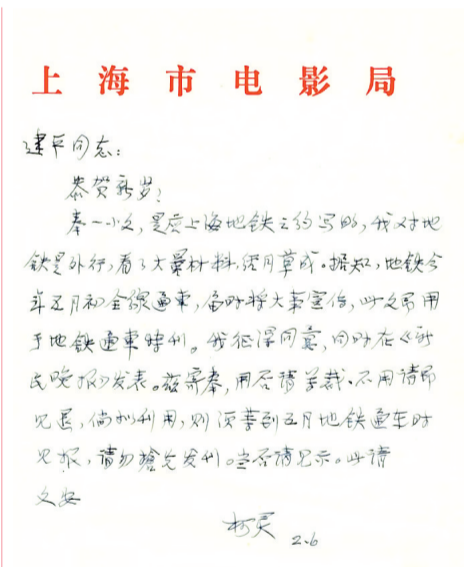 上海市电影局
建平同志：
恭贺新岁！
奉一小文，是应上海地铁之约写的，我对地
铁是外行，看了大量材料，经月草成。据知，地铁今
年五月初全線通車，届时将大事宣传，此文将用
于地铁通車特刊。我征得同意，同时在《新
民晚报》发表。兹寄奉，用否请草裁。不用请即
见退，倘拟利用，则须等到五月地铁通车时
见报，请勿搶先发刊。当否请见示。此请
文安
柯灵 2.6